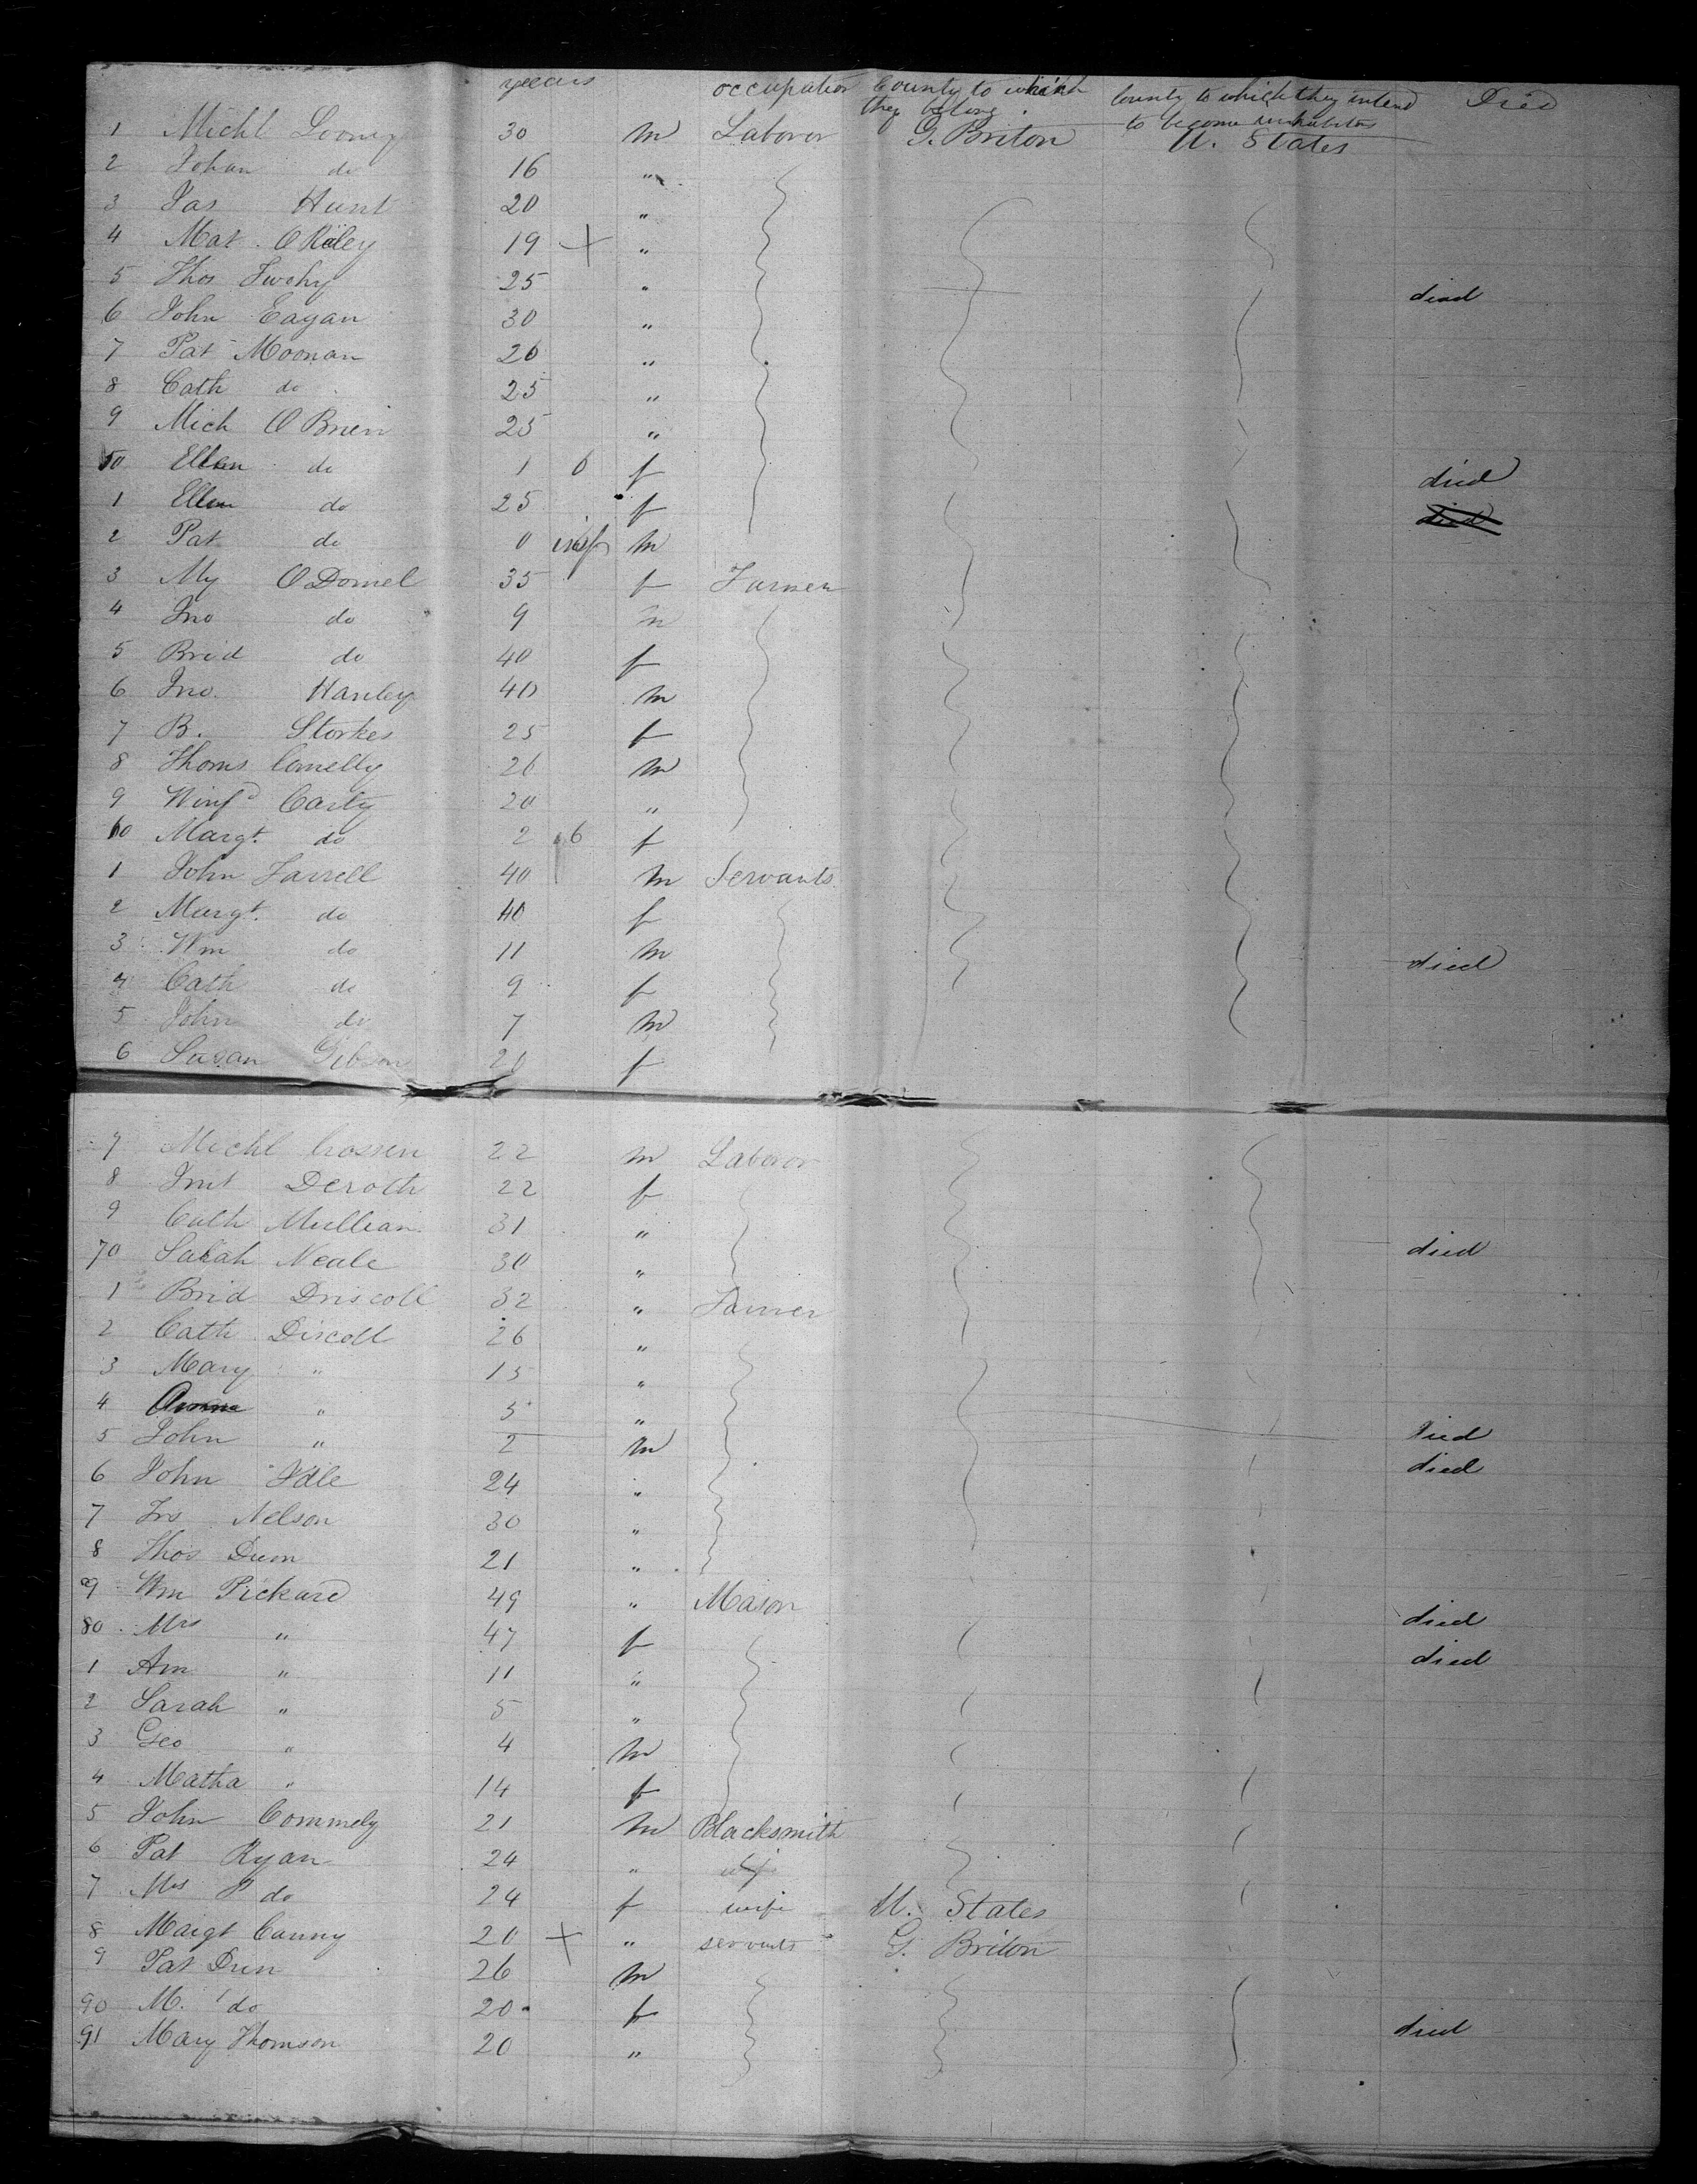 years occupation County to which they belong County to which they intend to become inhabitors Died
1 Michl Looney 30 m Laboror G. Briton U. States
2 Johan do 16 "
3 Jas Hunt 20 "
4 Mat O Riley 19 + "
5 Thos Twohy 25 " died
6 John Eagan 30 "
7 Pat Moonan 26 "
8 Cath do 25 "
9 Mich O Brien 25 "
50 Ellen do 1 6 f died
1 Ellen do 25 f died
2 Pat do 0 inf m
3 My O Donnel 35 f Farmer
4 Jno do 9 m
5 Brid do 40 f
6 Jno. Hanley 40 m
7 B. Storkes 25 f
8 Thoms Connelly 26 m
9 Winfd Carty 20 "
60 Margt. do 2 6 f
1 John Farrell 40 m Servants
2 Margt. do 40 f
3 Wm do 11 m died
4 Cath do 9 f
5 John do 7 m
6 Susan Gibson 20 f
7 Michl Crossen 22 m Laboror
8 Deroth 22 f
9 Cath Mullian 31 "
70 Sarah Neale 30 " died
1 Brid Driscoll 32 " Farmer
2 Cath Discoll 26 "
3 Mary " 15 "
4 Anna " 5 "
5 John " 2 m Died
6 John Idle 24 " died
7 Jno Nelson 30 "
8 Thos Dunn 21 "
9 Wm Pickard 49 " Mason
80 Mrs " 47 f died
1 Ann " 11 " died
2 Sarah " 5 "
3 Geo " 4 m
4 Matha " 14 f
5 John Commely 21 m Blacksmith
6 Pat Ryan 24 "
7 Mrs P do 24 f wife U. States
8 Margt Canny 20 + " servants G. Briton
9 Pat Dun 26 m
90 M. do 20 f
91 Mary Thomson 20 " died